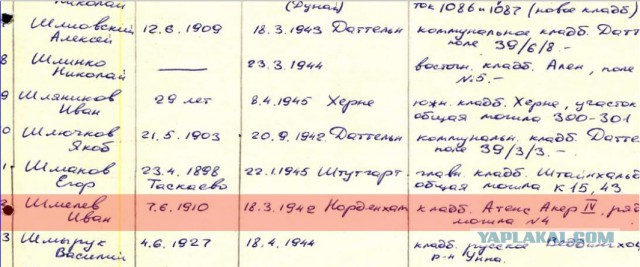 Николай (Дунай) ток 1086 и 1087 (новое кладб)
Шмовский 12.6.1909 18.3.1943 Даттельн коммунальное кладб. Датт
Алексей поле 39/6/8.-
8 Шлинко — 23.3.1944 восточн. кладб. Ален, поле
Николай №5.-
9 Шляников 29 лет 8.4.1945 Херне южн. кладб. Херне, участок
Иван общая могила 300-301
0 Шлючков 21.5.1903 20.9.1942 Даттельн коммунальн. кладб. Датте
Якоб поле 39/3/3.-
1 Шмаков 23.4.1898 22.1.1945 Штутгарт главн. кладб. Штайнхальд
Егор Таскаево общая могила К 15, 43
2 Шмелев 7.6.1910 18.3.1942 Норденхам кладб. Атенс Акер IV, ряд
Иван могила №4
3 Шмырук 4.6.1927 18.4.1944 кладб. русское
Василий р-н Унна.
YAPLAKAL.COM